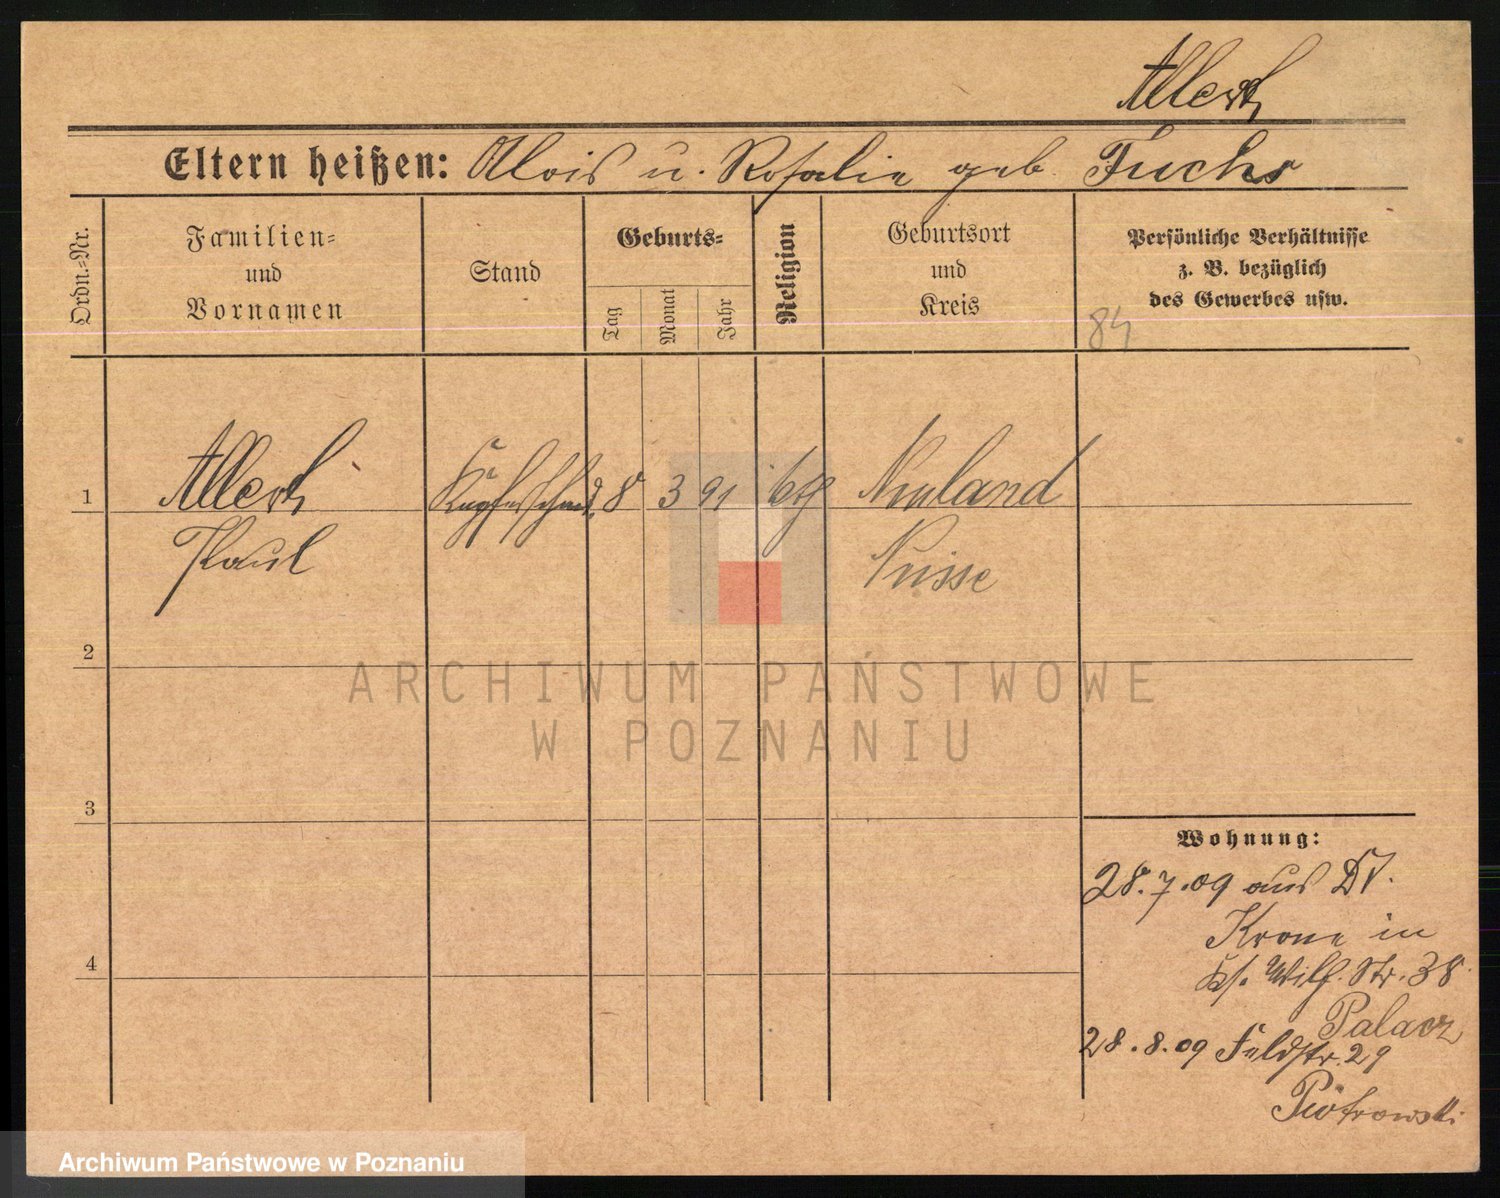 Allert
Eltern heißen: Alois u. Rosalie geb. Fuchs
Ordn.=Nr.
Familien=
und
Vornamen
Stand
Geburts=
Tag
Monat
Jahr
Religion
Geburtsort
und
Kreis
Persönliche Verhältnisse
z. B. bezüglich
des Gewerbes usw.
84
1
Allert
Paul
Kupferschmd.
8
3
91
kth
Neuland
Neisse
2
3
4
Wohnung:
28.7.09 aus Dt.
Krone in
Ks. Wilh. Str. 38
Palacz
28.8.09 Feldstr. 29
Piotrowski
ARCHIWUM PAŃSTWOWE
W POZNANIU
Archiwum Państwowe w Poznaniu